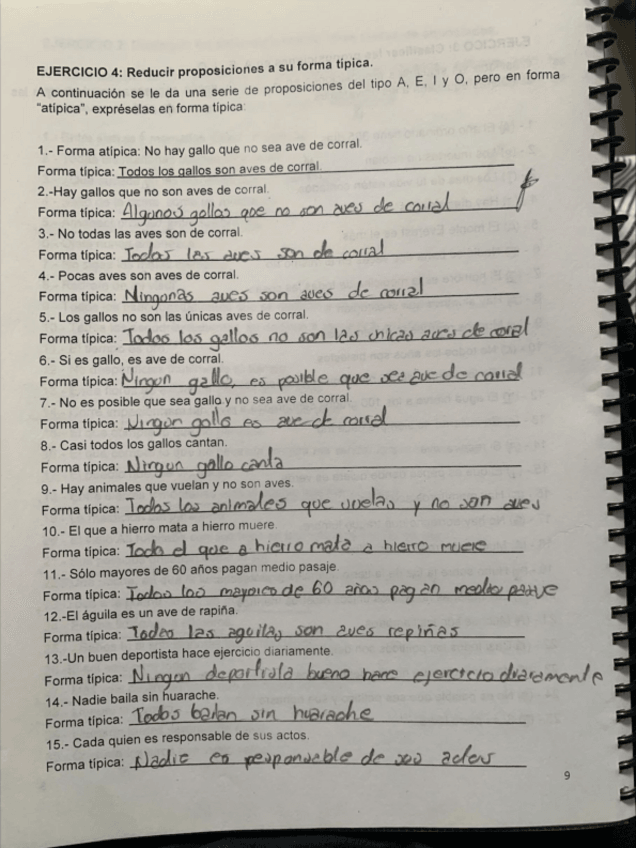 EJERCICIO 4: Reducir proposiciones a su forma típica.
A continuación se le da una serie de proposiciones del tipo A, E, I y O, pero en forma
"atípica", expréselas en forma típica:
1.- Forma atípica: No hay gallo que no sea ave de corral.
Forma típica: Todos los gallos son aves de corral.
2.-Hay gallos que no son aves de corral.
Forma típica: Algunos gallos que no son aves de corral
3.- No todas las aves son de corral.
Forma típica: Todas las aves son de corral
4.- Pocas aves son aves de corral.
Forma típica: Ningonas aves son aves de corral
5.- Los gallos no son las únicas aves de corral.
Forma típica: Todos los gallos no son las unicas aves de coral
6.- Si es gallo, es ave de corral.
Forma típica: Ningun gallo, es posible que sea ave de corral
7.- No es posible que sea gallo y no sea ave de corral.
Forma típica: Ningun gallo es ave de corral
8.- Casi todos los gallos cantan.
Forma típica: Ningun gallo canta
9.- Hay animales que vuelan y no son aves.
Forma típica: Todos los animales que vuelas y no son aves
10.- El que a hierro mata a hierro muere.
Forma típica: Todo el que a hierro mata a hierro muere
11.- Sólo mayores de 60 años pagan medio pasaje.
Forma típica: Todos los mayores de 60 años pagan medio
12.-El águila es un ave de rapiña.
Forma típica: Todas las aguilas son aves repiñas
13.-Un buen deportista hace ejercicio diariamente.
Forma típica: Ningun deportista bueno hace ejercicio diaramente
14.- Nadie baila sin huarache.
Forma típica: Todos bailan sin huarache
15.- Cada quien es responsable de sus actos.
Forma típica: Nadie es responsable de sus actos
9